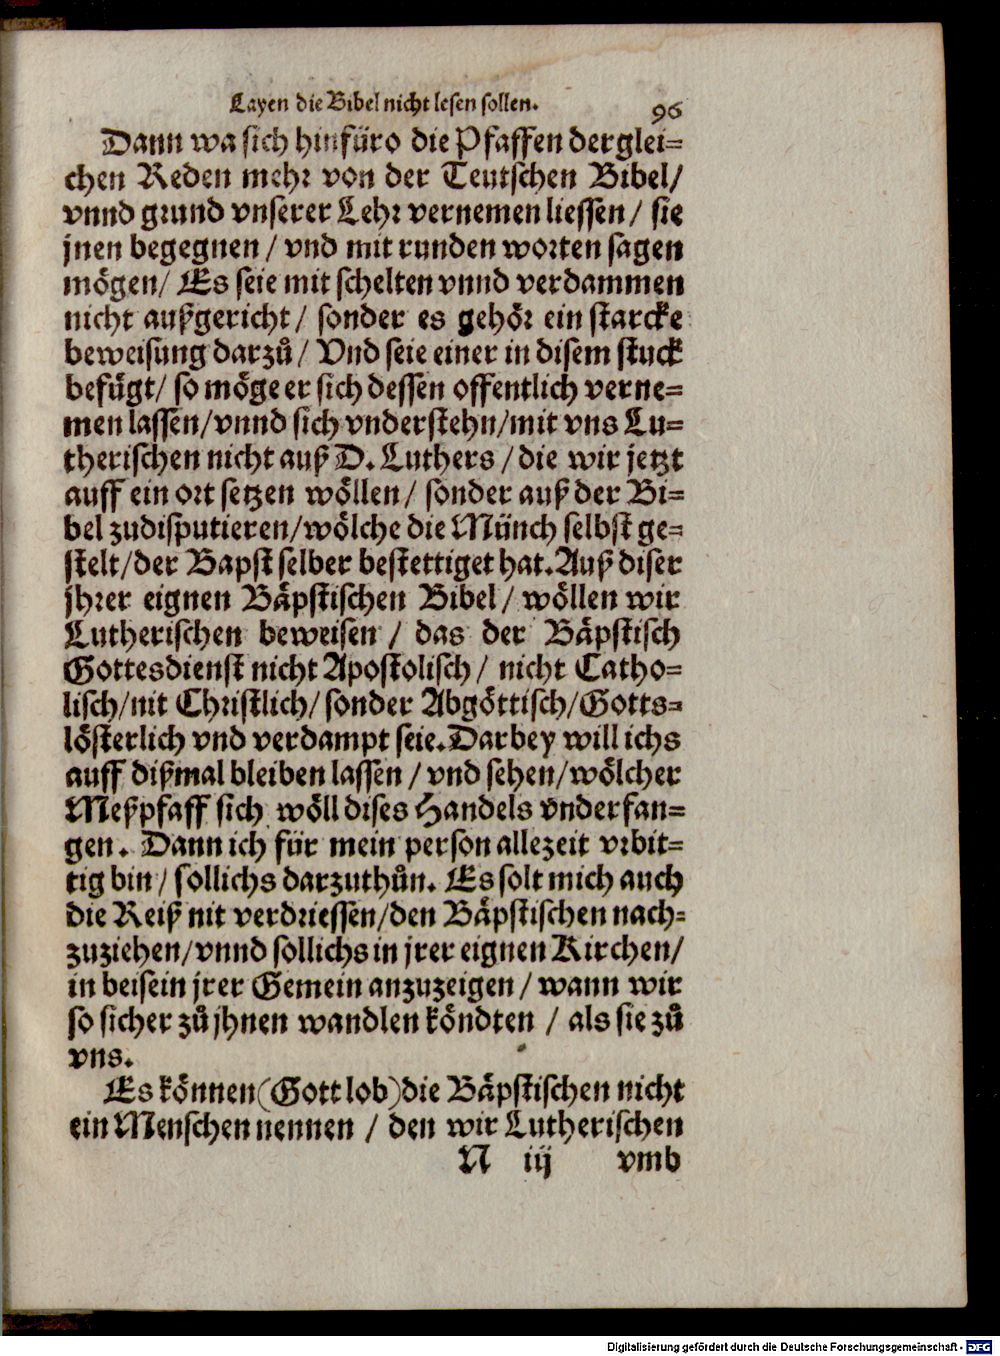 Layen die Bibel nicht lesen sollen. 96
Dann wa sich hinfüro die Pfaffen derglei=
chen Reden mehr von der Teutschen Bibel/
vnnd grund vnserer Lehr vernemen liessen / sie
jnen begegnen / vnd mit runden worten sagen
mögen/ Es seie mit schelten vnnd verdammen
nicht außgericht / sonder es gehör ein starcke
beweisung darzů / Vnd seie einer in disem stuck
befügt/ so möge er sich dessen offentlich verne=
men lassen/vnnd sich vnderstehn/mit vns Lu=
therischen nicht auß D. Luthers / die wir jetzt
auff ein ort setzen wöllen / sonder auß der Bi=
bel zudisputieren/wölche die Münch selbst ge=
stelt/der Bapst selber bestettiget hat. Auß diser
jhrer eignen Bäpstischen Bibel / wöllen wir
Lutherischen beweisen / das der Bäpstisch
Gottesdienst nicht Apostolisch / nicht Catho=
lisch/nit Christlich/ sonder Abgöttisch/Gotts=
lösterlich vnd verdampt seie. Darbey will ichs
auff dißmal bleiben lassen / vnd sehen/wölcher
Meßpfaff sich wöll dises Handels vnderfan=
gen. Dann ich für mein person allezeit vrbit=
tig bin / sollichs darzuthůn. Es solt mich auch
die Reiß nit verdriessen/den Bäpstischen nach=
zuziehen/vnnd sollichs in jrer eignen Kirchen/
in beisein jrer Gemein anzuzeigen / wann wir
so sicher zů jhnen wandlen köndten / als sie zů
vns.
Es können (Gott lob) die Bäpstischen nicht
ein Menschen nennen / den wir Lutherischen
N iij vmb
Digitalisierung gefördert durch die Deutsche Forschungsgemeinschaft - DFG